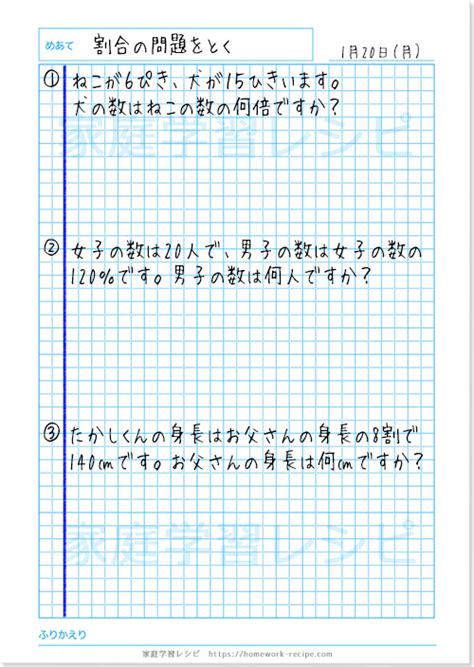 めあて 割合の問題をとく 1月20日(月)
① ねこが6ぴき、犬が15ひきいます。
犬の数はねこの数の何倍ですか？
家庭学習レシピ
② 女子の数は20人で、男子の数は女子の数の
120%です。男子の数は何人ですか？
③ たかしくんの身長はお父さんの身長の8割で
140cmです。お父さんの身長は何cmですか？
家庭学習レシピ
ふりかえり
家庭学習レシピ https://homework-recipe.com/